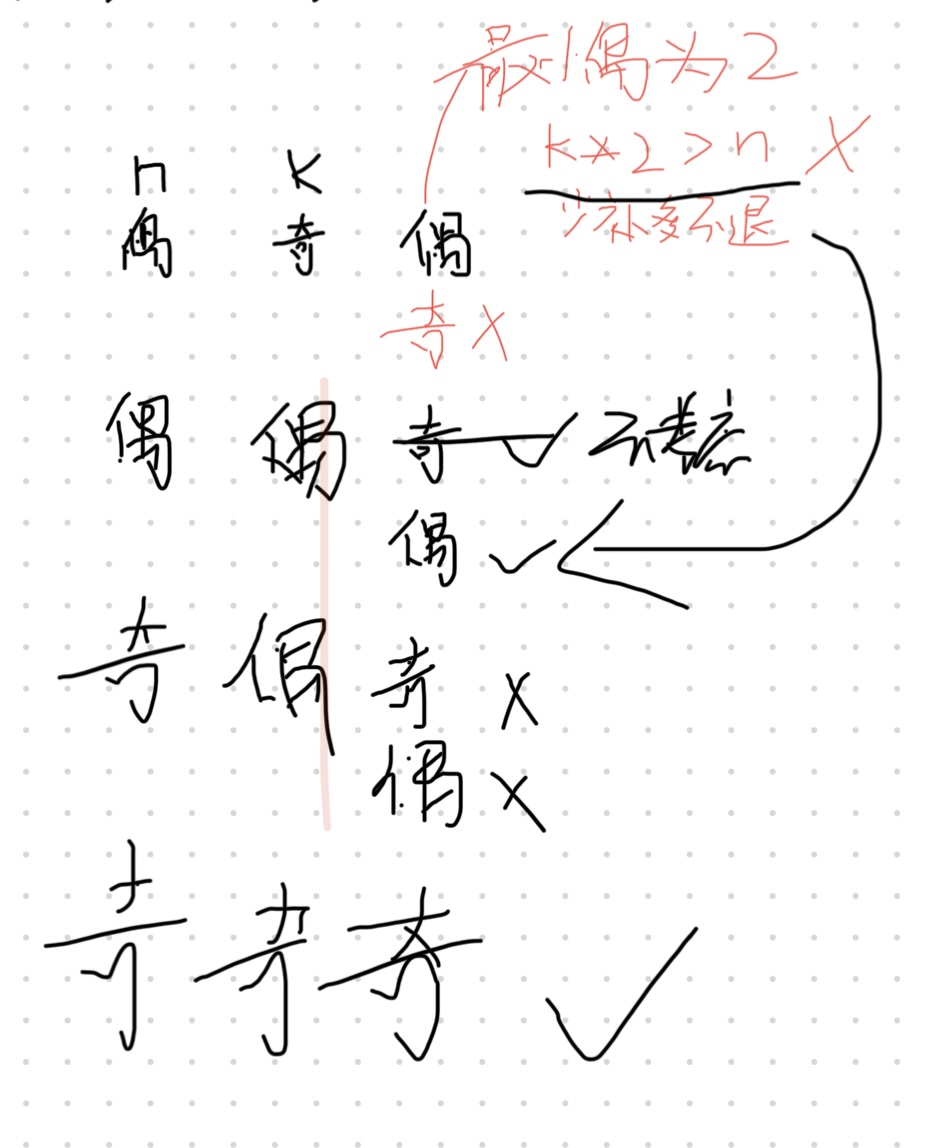 最小偶为2
k*2>n X
少补多不退
n k
偶 奇 偶
奇 X
偶 偶 奇 ✓ 不考虑
偶 ✓
奇 偶 奇 X
偶 X
奇 奇 奇 ✓